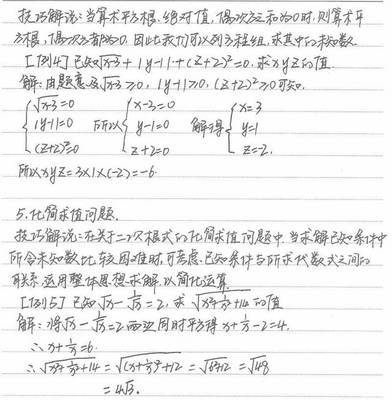 技巧解说:当算术平方根、绝对值、偶次方之和为0时,则算术平
方根,偶次方都为0,因此我们可以列方程组,求其中的未知数.
[例4] 已知√x-3 + |y-1| + (z+2)²=0,求xyz的值.
解:由题意及√x-3≥0, |y-1|≥0, (z+2)²≥0可知.
{√x-3=0 {x-3=0 {x=3
|y-1|=0 所以 y-1=0 解得 y=1
(z+2)²=0 z+2=0 z=-2.
所以xyz=3×1×(-2)=-6.
5.化简求值问题.
技巧解说:在关于二次根式的化简求值问题中,当求解已知条件中
所含未知数比较困难时,可考虑已知条件与所求代数式之间的
联系,运用整体思想求解,以简化运算.
[例5] 已知√x-1/√x=2,求√x²+1/x²+14的值
解:将√x-1/√x=2两边同时平方得x+1/x-2=4.
∴x+1/x=6.
∴√x²+1/x²+14=√(x+1/x)²+12=√6²+12=√48
=4√3.